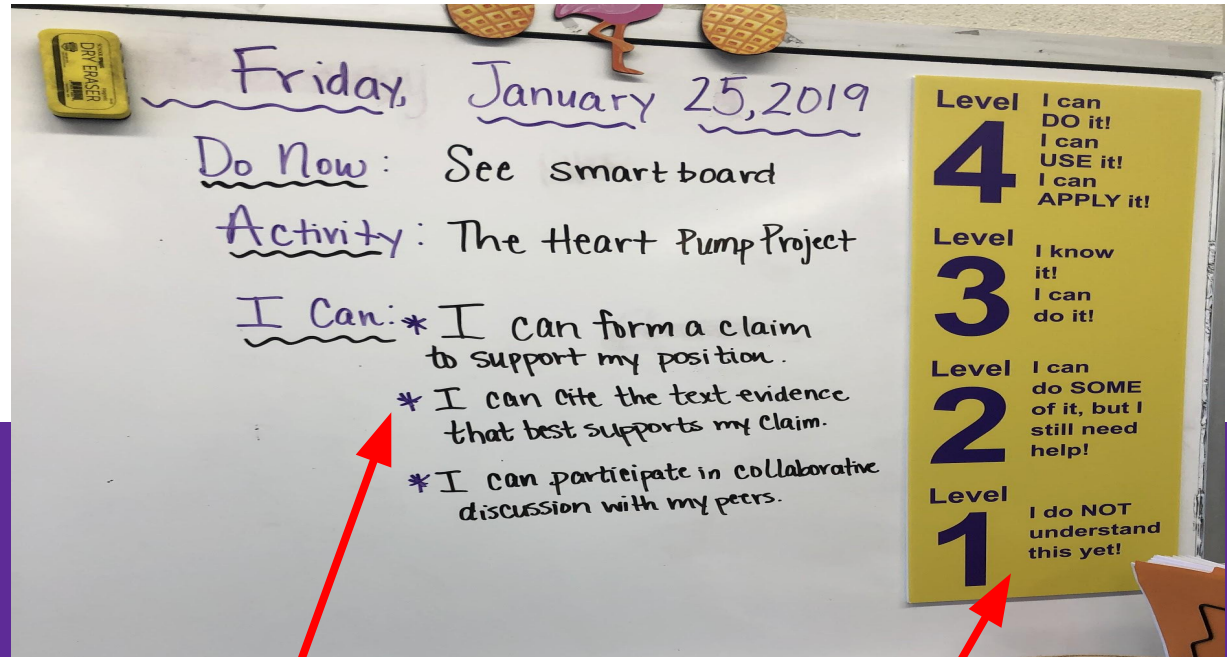 DRY ERASER
Friday, January 25, 2019
Do Now: See smartboard
Activity: The Heart Pump Project
I Can: * I can form a claim
to support my position.
* I can cite the text evidence
that best supports my claim.
* I can participate in collaborative
discussion with my peers.
Level 4
I can
DO it!
I can
USE it!
I can
APPLY it!
Level 3
I know
it!
I can
do it!
Level 2
I can
do SOME
of it, but I
still need
help!
Level 1
I do NOT
understand
this yet!